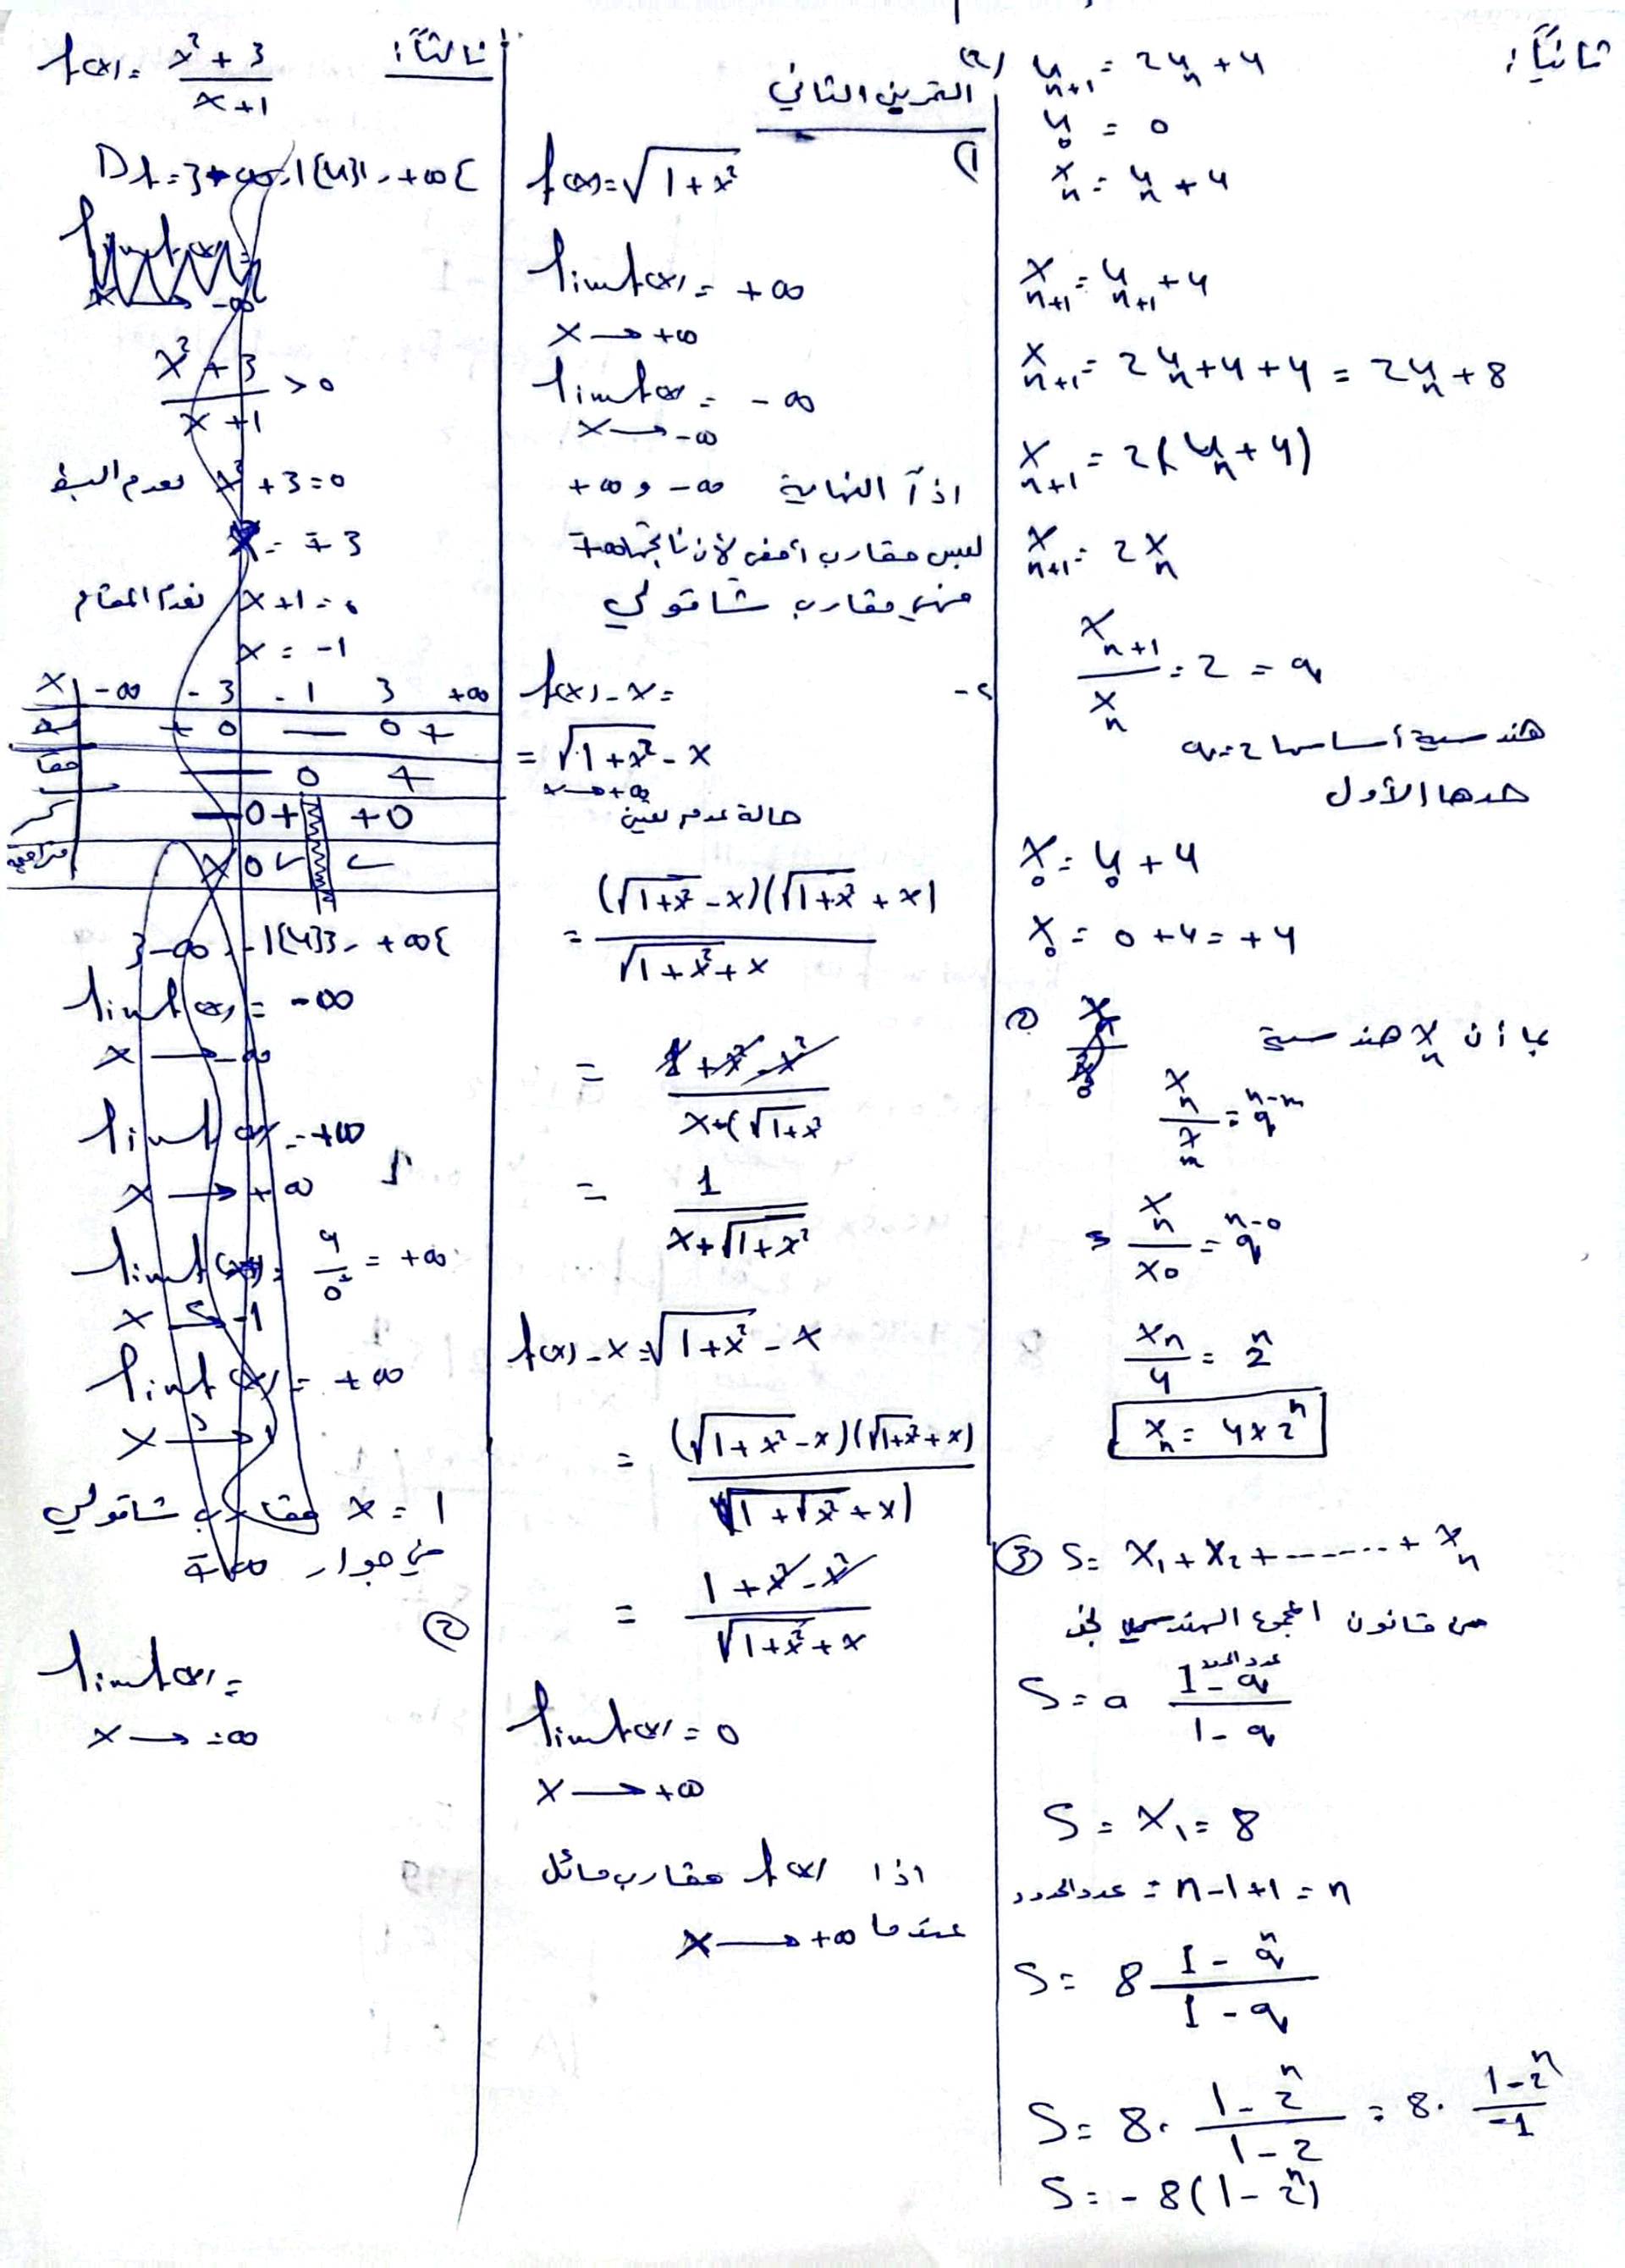 ثانياً:
(2) y_{n+1} = 2y_n + 4
y_0 = 0
x_n = y_n + 4
x_{n+1} = y_{n+1} + 4
x_{n+1} = 2y_n + 4 + 4 = 2y_n + 8
x_{n+1} = 2(y_n + 4)
x_{n+1} = 2x_n
x_{n+1}/x_n = 2 = q
هندسية أساسها q = 2
حدها الأول
x_0 = y_0 + 4
x_0 = 0 + 4 = +4
② بما أن x_n هندسية
x_n/x_m = q^{n-m}
x_n/x_0 = q^{n-0}
x_n/4 = 2^n
x_n = 4 × 2^n
③ S = x_1 + x_2 + ....... + x_n
من قانون المجموع الهندسي نجد
S = a (1 - q^{عدد الحدود})/(1 - q)
S = x_1 = 8
عدد الحدود = n - 1 + 1 = n
S = 8 (1 - q^n)/(1 - q)
S = 8 . (1 - 2^n)/(1 - 2) = 8 . (1 - 2^n)/(-1)
S = -8(1 - 2^n)
التمرين الثاني
1)
f(x) = √(1 + x²)
lim f(x) = +∞
x → +∞
lim f(x) = -∞
x → -∞
اذاً النهاية -∞ و +∞
ليس مقارب أفقي لأن ناتجها ∓∞
مقارب شاقولي
2- f(x) - x =
= √(1 + x²) - x
x → +∞
حالة عدم تعيين
= (√(1+x²) - x)(√(1+x²) + x)/(√(1+x²) + x)
= (1 + x² - x²)/(x + (√(1+x²)
= 1/(x + √(1+x²))
f(x) - x = √(1+x²) - x
= (√(1+x²) - x)(√(1+x²) + x)/(√(1+x²) + x)
= (1 + x² - x²)/(√(1+x²) + x)
lim f(x) = 0
x → +∞
اذا f(x) مقارب مائل
عندما x → +∞
ثالثاً:
f(x) = (x² + 3)/(x + 1)
(x² + 3)/(x + 1) > 0
نعدم البسط x² + 3 = 0
x = ∓3
نعدم المقام x + 1 = 0
x = -1
x -∞ -3 -1 3 +∞
+ 0 — 0 +
— 0 +
— 0 + + 0
]-∞, -1[∪]3, +∞[
lim f(x) = -∞
x → -∞
lim f(x) = +∞
x → +∞
lim f(x) = 4/0⁺ = +∞
x → -1
lim f(x) = +∞
x → 1
x = 1 مقارب شاقولي
في جوار ∓∞
②
lim f(x) =
x → -∞